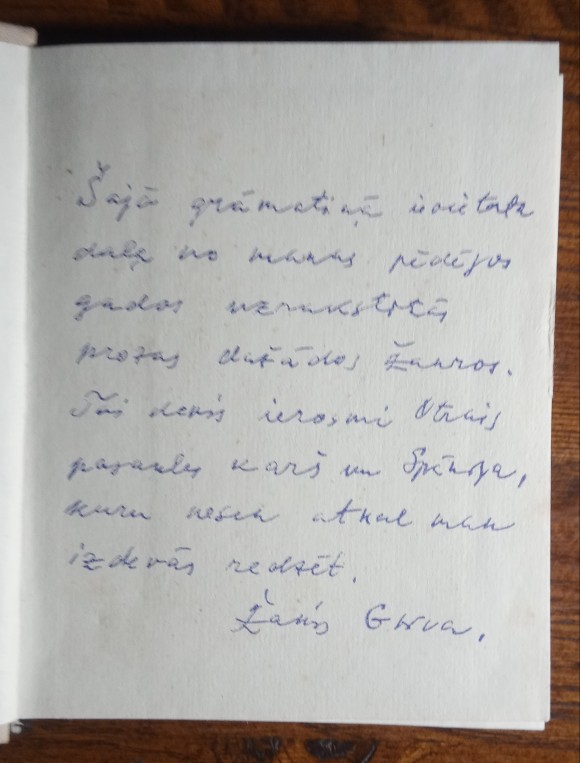 Šajā grāmatiņā ievietota
daļa no manas pēdējos
gados uzrakstītās
prozas dažādos žanros.
Tai devis ierosmi Otrais
pasaules karš un Spānija,
kuru nesen atkal man
izdevās redzēt.
Žanis Grīva.